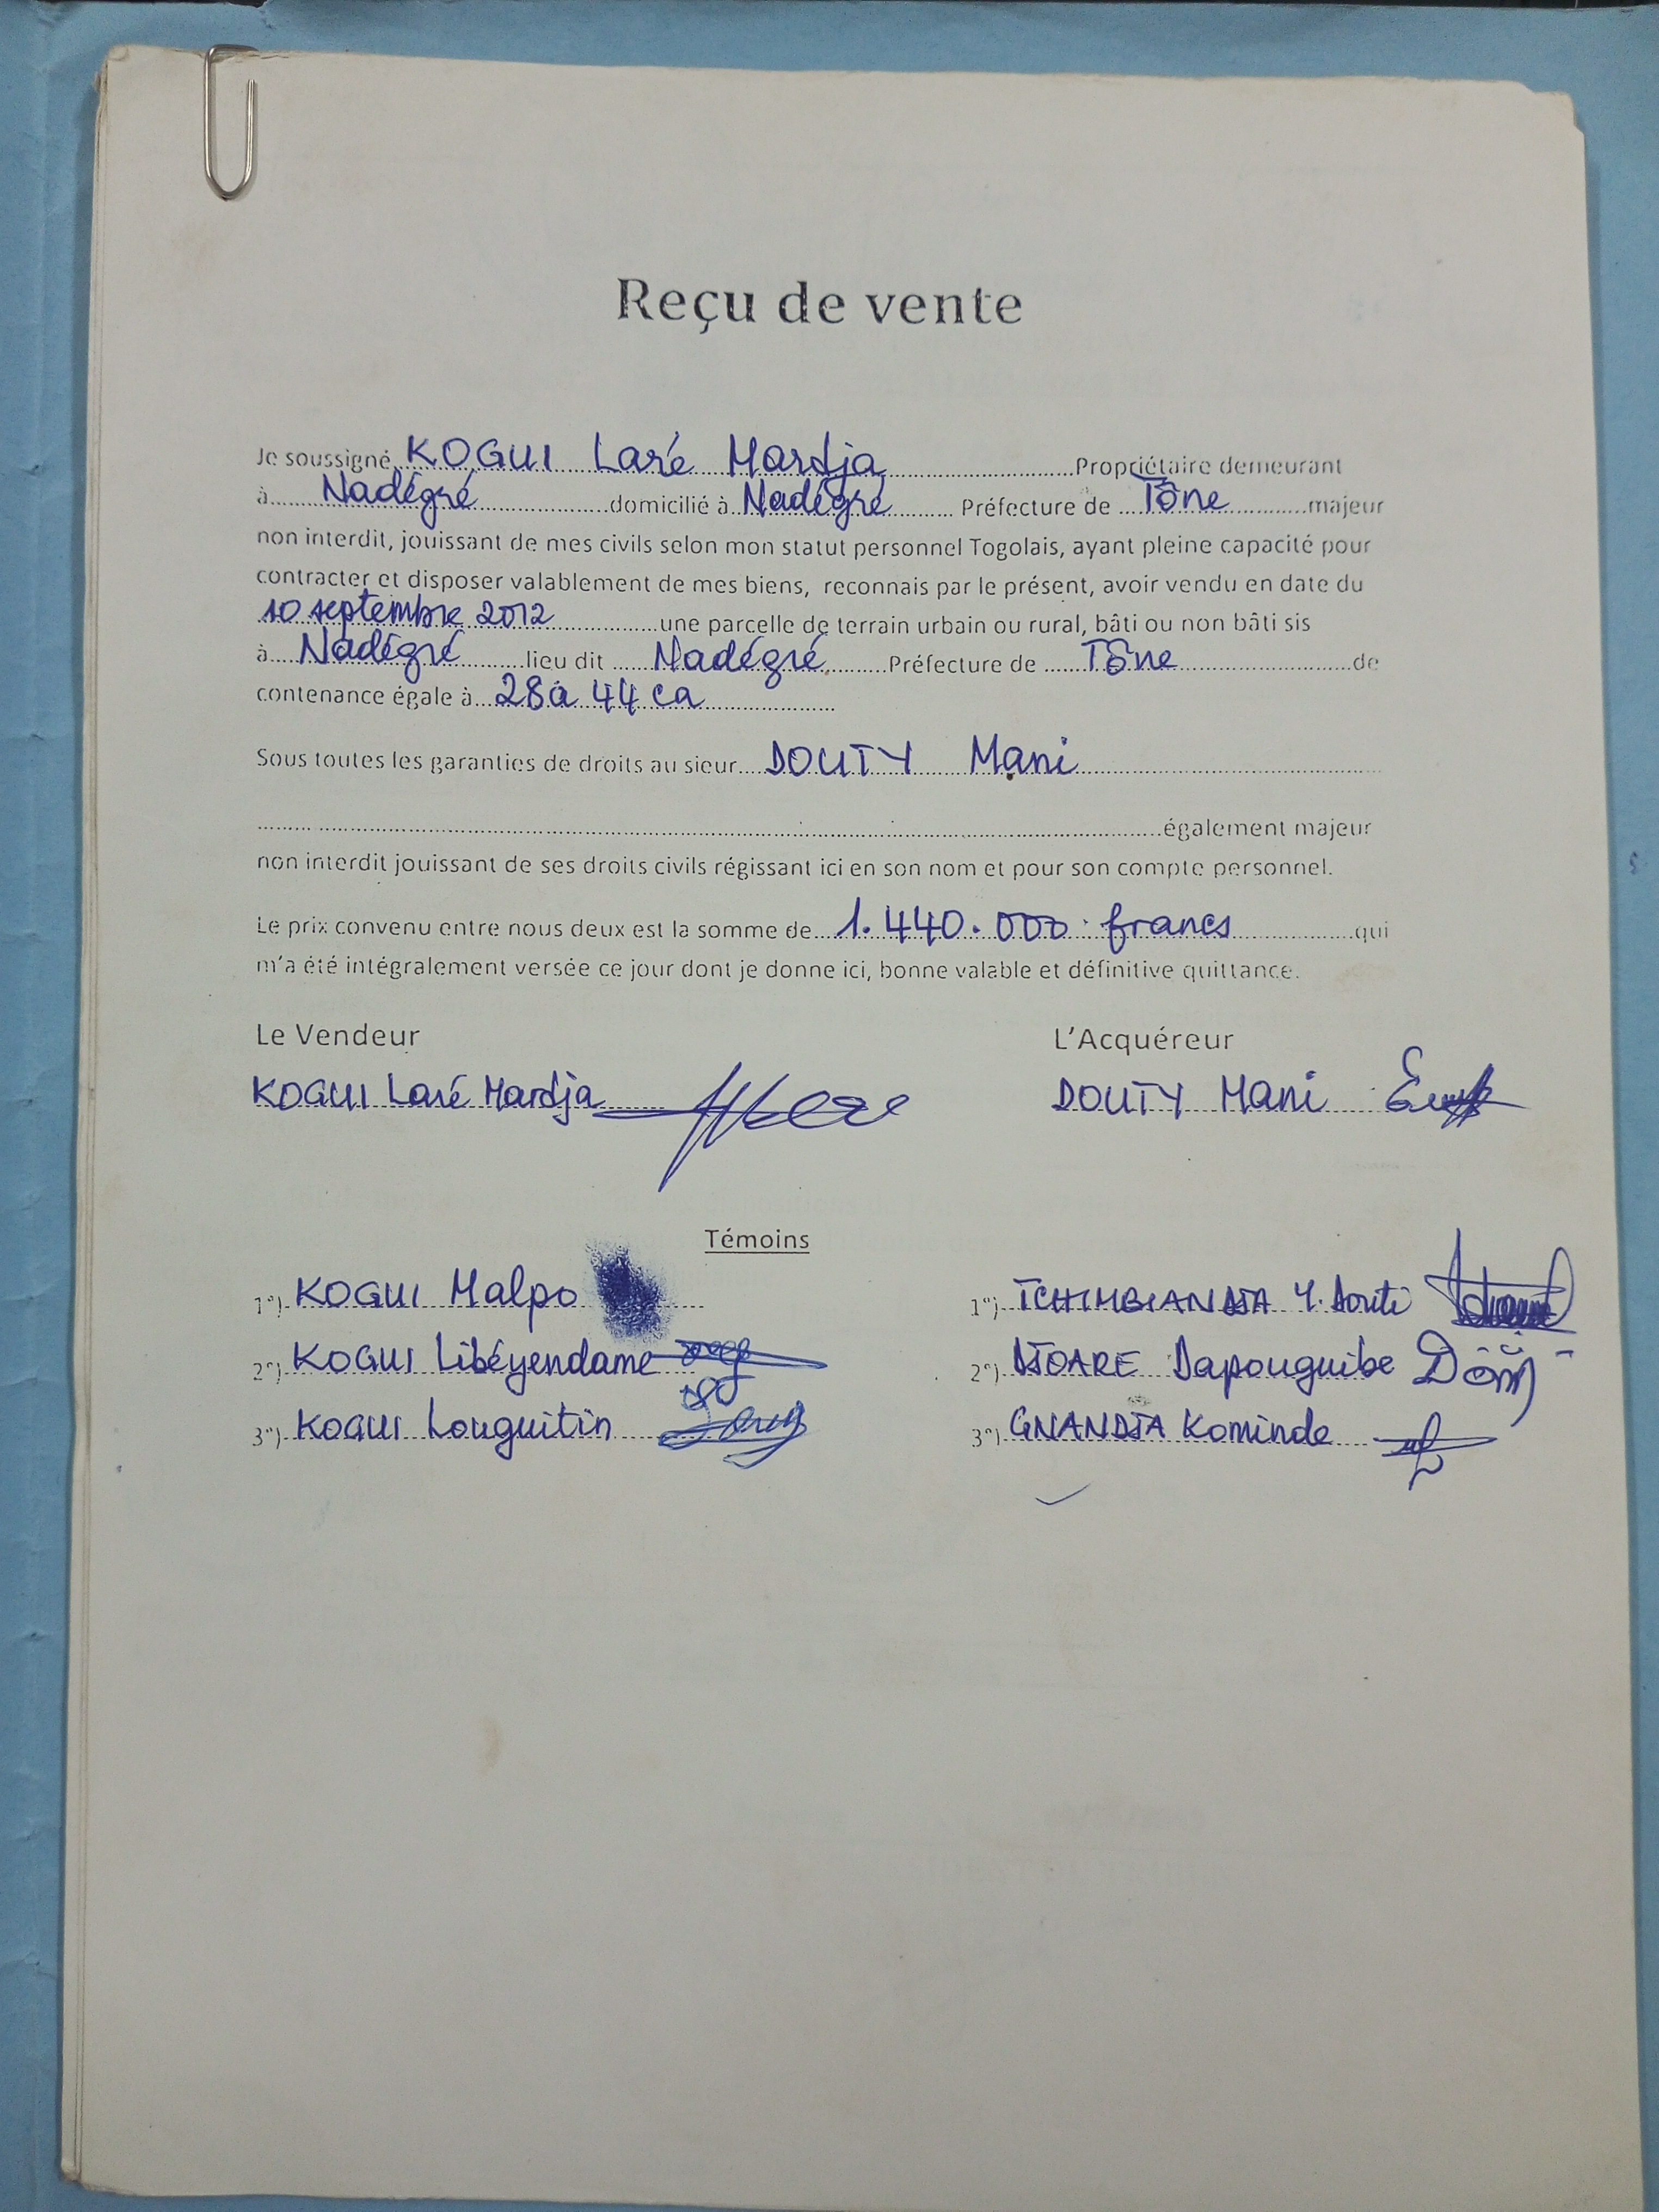 Reçu de vente
Je soussigné, KOGUI Laré Mardja Propriétaire demeurant
à Nadégré domicilié à Nadégré Préfecture de Tône majeur
non interdit, jouissant de mes civils selon mon statut personnel Togolais, ayant pleine capacité pour
contracter et disposer valablement de mes biens, reconnais par le présent, avoir vendu en date du
10 septembre 2012 une parcelle de terrain urbain ou rural, bâti ou non bâti sis
à Nadégré lieu dit Nadégré Préfecture de Tône de
contenance égale à 28a 44 ca
Sous toutes les garanties de droits au sieur DOUTY Mani
également majeur
non interdit jouissant de ses droits civils régissant ici en son nom et pour son compte personnel.
Le prix convenu entre nous deux est la somme de 1.440.000 francs qui
m'a été intégralement versée ce jour dont je donne ici, bonne valable et définitive quittance.
Le Vendeur L'Acquéreur
KOGUI Laré Mardja DOUTY Mani
Témoins
1°) KOGUI Malpo 1°) TCHIMBIANDJA Y. Douti
2°) KOGUI Libéyendame 2°) DJOARE Dapouguibe
3°) KOGUI Louguitin 3°) GNANDJA Kominde